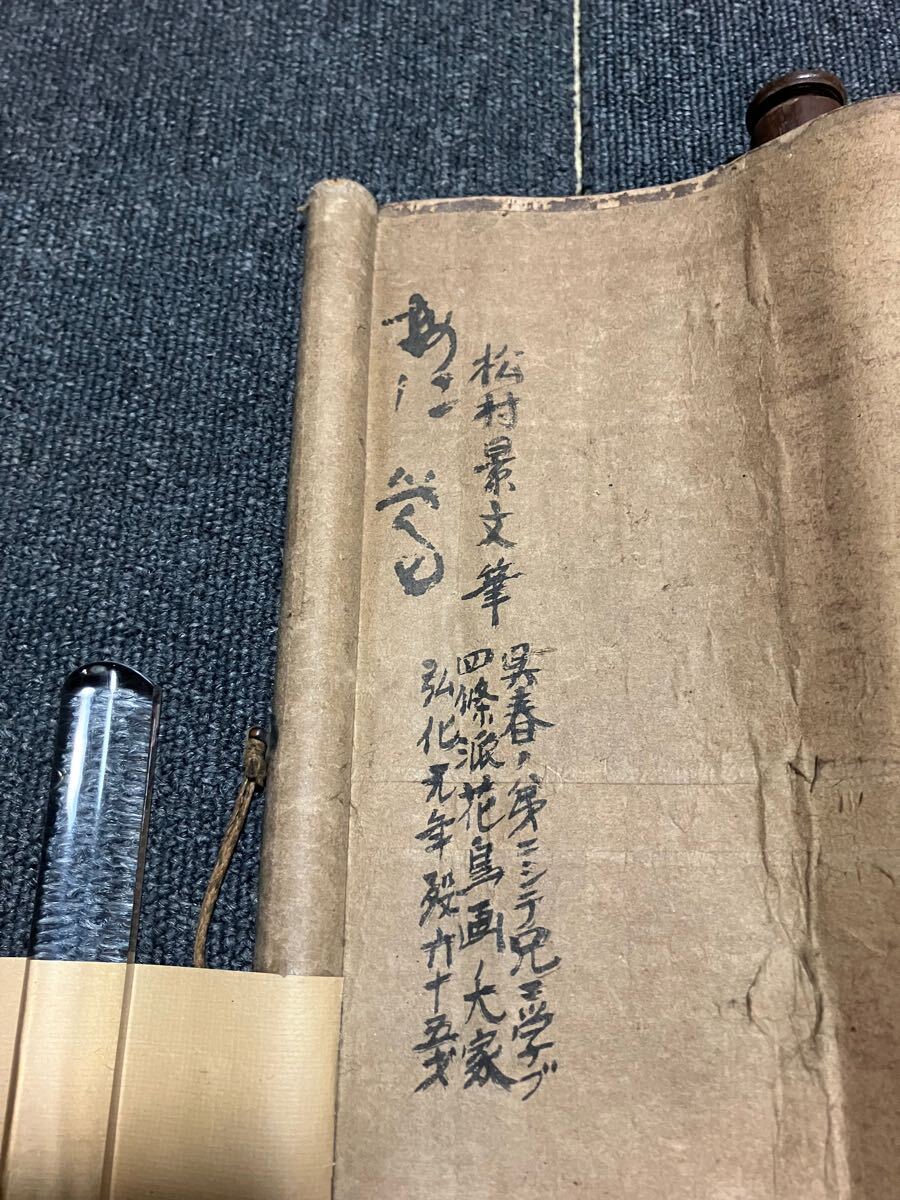 松村景文筆
呉春ノ弟ニシテ兄ニ学ブ
四條派花鳥画ノ大家
弘化元年歿六十五才